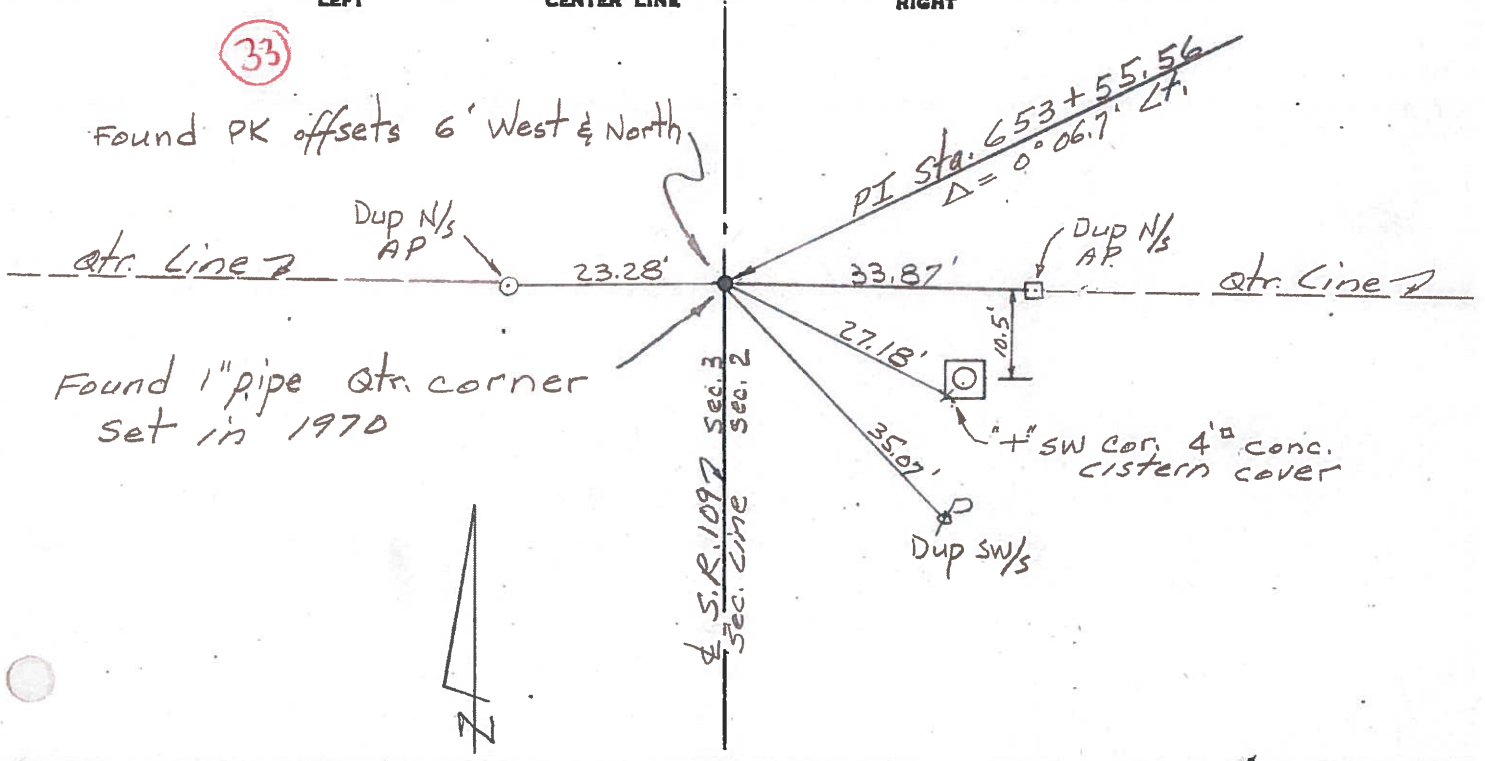 LEFT
CENTER LINE
RIGHT
33
Found PK offsets 6' West & North
PI Sta. 653+55.56
Δ = 0° 06.7' Lt.
Dup N/s
AP
Dup N/s
AP
Qtr. Line
23.28'
33.87'
Qtr. Line
10.5'
27.18'
Found 1" pipe Qtr. corner
set in 1970
Sec. 3
Sec. 2
35.07'
"+" SW Cor. 4'□ conc.
cistern cover
℄ S.R. 109
Sec. Line
Dup SW/s
N